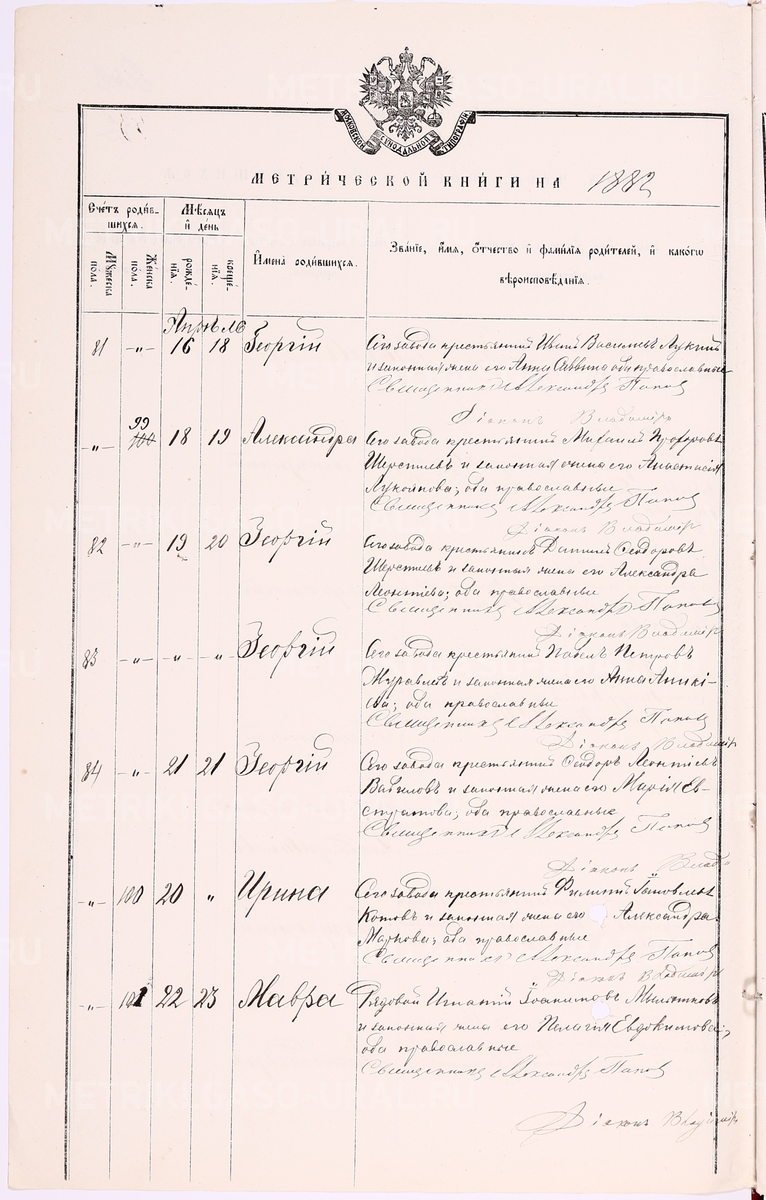 МОСКОВСКОЙ СѴНОДАЛЬНОЙ ТИПОГРАФІИ
МЕТРИ́ЧЕСКОЙ КНИ́ГИ НА 1882
Сче́тъ роди́в-
шихся.
Мѣ́сяцъ
и҆ де́нь
Мꙋ́жеска
пола.
Же́нска
пола.
рожде́-
нїѧ.
креще́-
нїѧ.
И҆мена̀ роди́вшихся.
Зва́нїе, и҆́мѧ, ѻ҆́тчество и҆ фами́лїѧ роди́телей, и҆ како́гѡ
вѣроисповѣ́данїѧ.
Апрѣль
81 -„- 16 18 Георгій Сего завода крестьянинъ Иванъ Васильевъ Лукинъ
и законная жена его Анна Саввина оба православные
Священникъ Александръ Поповъ
Діаконъ Владиміръ
-„- 99 100 18 19 Александра Сего завода крестьянинъ Михаилъ
Шерстневъ и законная жена его Анастасія
оба православные
Священникъ Александръ Поповъ
Діаконъ Владиміръ
82 -„- 19 20 Георгій Сего завода крестьянинъ Ѳеодоровъ
Шерстневъ и законная жена его Александра
Леонтіева; оба православные
Священникъ Александръ Поповъ
Діаконъ Владиміръ
83 -„- -„- „- Георгій Сего завода крестьянинъ Павелъ Петровъ
Муравлевъ и законная жена его Анна Аники-
ева; оба православные
Священникъ Александръ Поповъ
Діаконъ Владиміръ
84 -„- 21 21 Георгій Сего завода крестьянинъ Ѳеодоръ Леонтіевъ
Вавиловъ и законная жена его Марія Ев-
стратова; оба православные
Священникъ Александръ Поповъ
Діаконъ Влади
-„- 100 20 „ Ирина Сего завода крестьянинъ Филиппъ Іаковлевъ
Котовъ и законная жена его Александра
Маркова; оба православные
Священникъ Александръ Поповъ
Діаконъ Владиміръ
-„- 101 22 23 Мавра Рядовой Игнатій Іоакимовъ
и законная жена его Пелагія Евдокимова;
оба православные
Священникъ Александръ Поповъ
Діаконъ Владиміръ